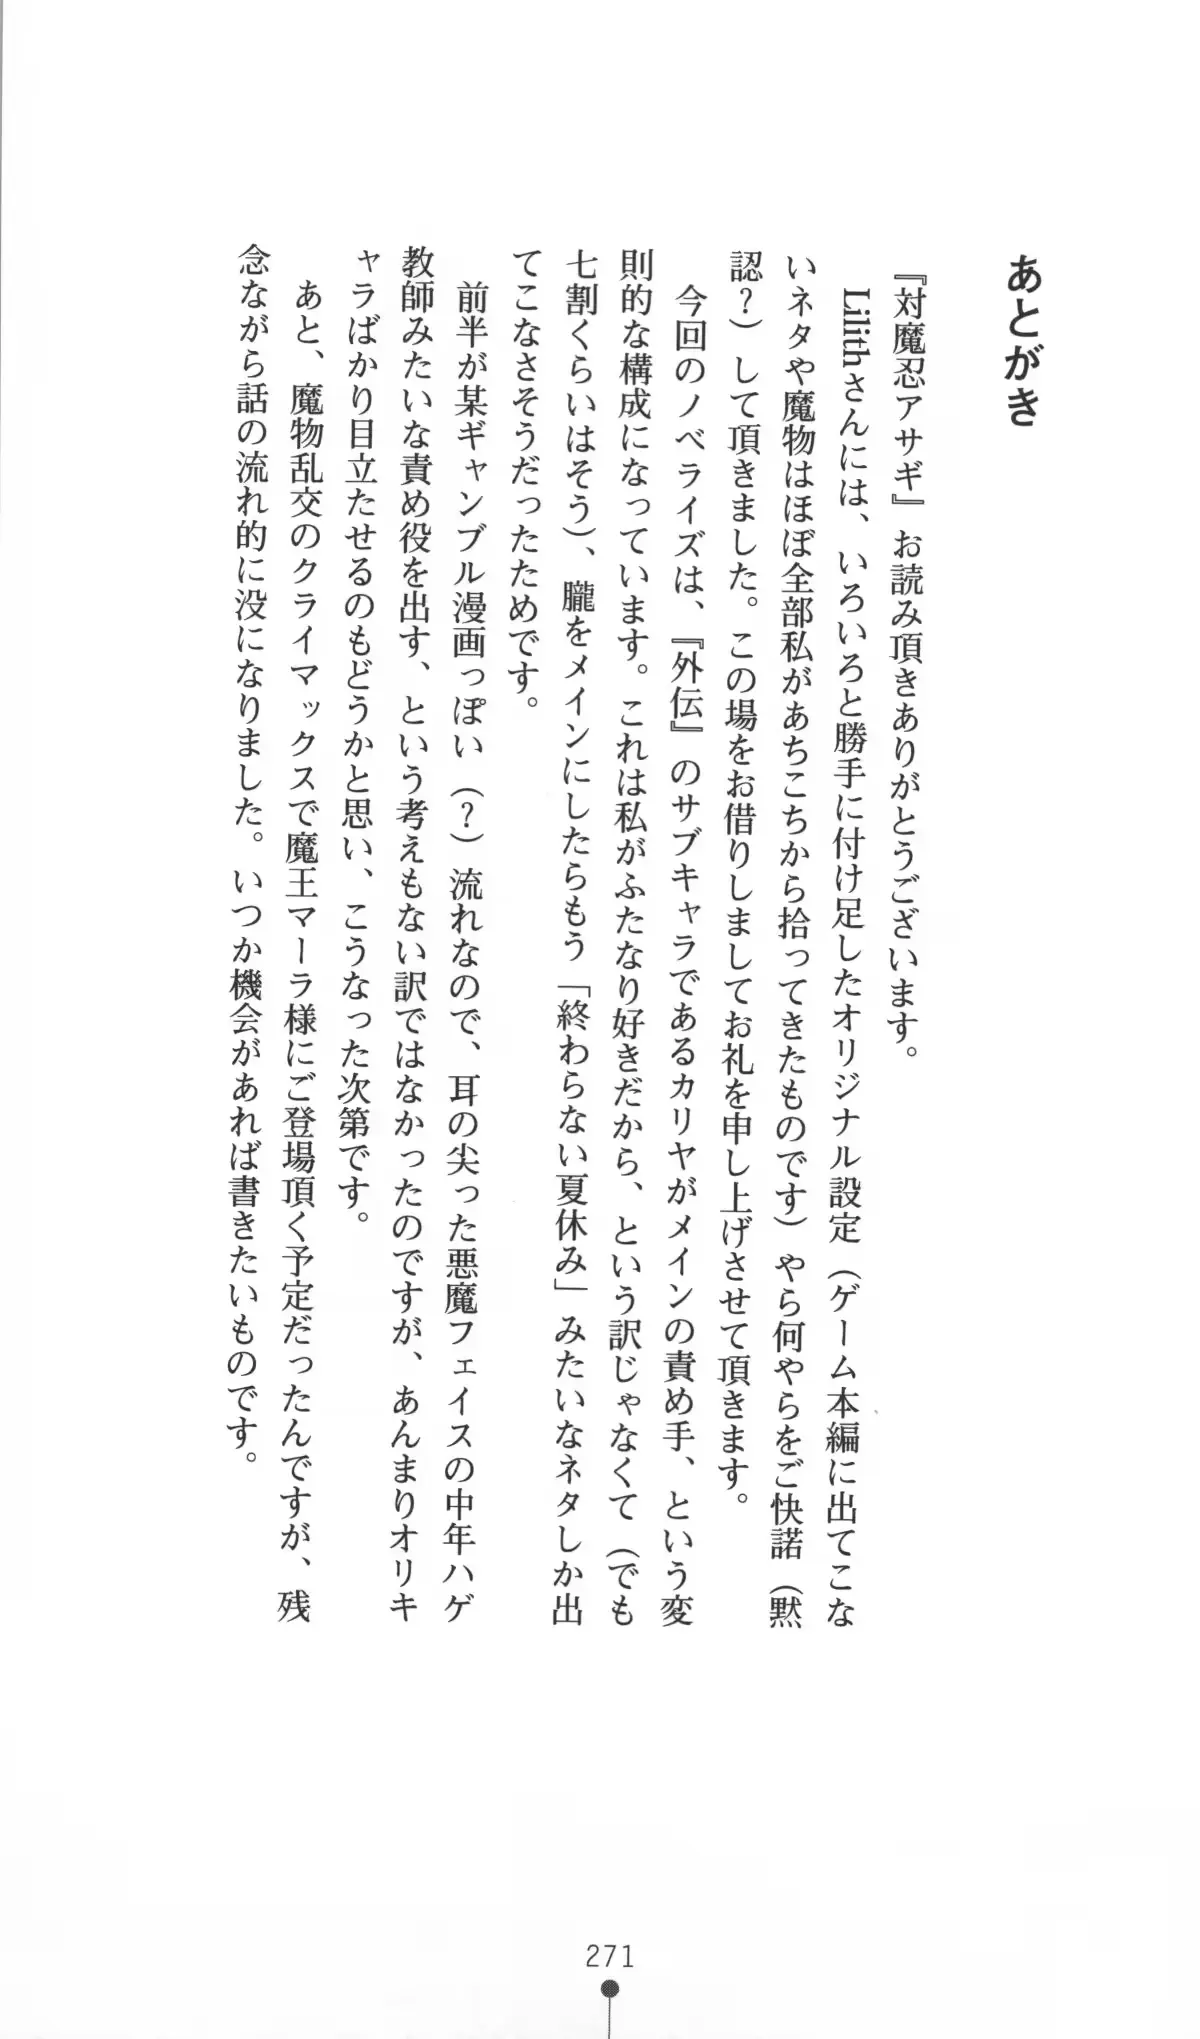 あとがき
『対魔忍アサギ』お読み頂きありがとうございます。
Lilithさんには、いろいろと勝手に付け足したオリジナル設定（ゲーム本編に出てこな
いネタや魔物はほぼ全部私があちこちから拾ってきたものです）やら何やらをご快諾（黙
認？）して頂きました。この場をお借りしましてお礼を申し上げさせて頂きます。
今回のノベライズは、『外伝』のサブキャラであるカリヤがメインの責め手、という変
則的な構成になっています。これは私がふたなり好きだから、という訳じゃなくて（でも
七割くらいはそう）、朧をメインにしたらもう「終わらない夏休み」みたいなネタしか出
てこなさそうだったためです。
前半が某ギャンブル漫画っぽい（？）流れなので、耳の尖った悪魔フェイスの中年ハゲ
教師みたいな責め役を出す、という考えもない訳ではなかったのですが、あんまりオリキ
ャラばかり目立たせるのもどうかと思い、こうなった次第です。
あと、魔物乱交のクライマックスで魔王マーラ様にご登場頂く予定だったんですが、残
念ながら話の流れ的に没になりました。いつか機会があれば書きたいものです。
271